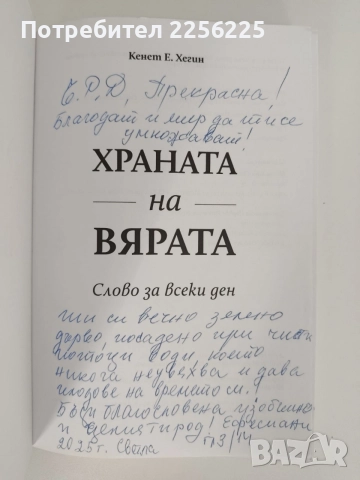 Потребител 2256236
Кенет Е. Хегин
Ч.Р.Д, Прекрасна!
Благодат и мир да ти се
умножават!
ХРАНАТА
на
ВЯРАТА
Слово за всеки ден
Ти си вечно зелено
дърво, посадено при чисти
потоци води, което
никога не увехва и дава
плодове на времето си!
Бъди благословена изобилно
и целият род! Ефесяни
2025г. Светла 3/14
bazar